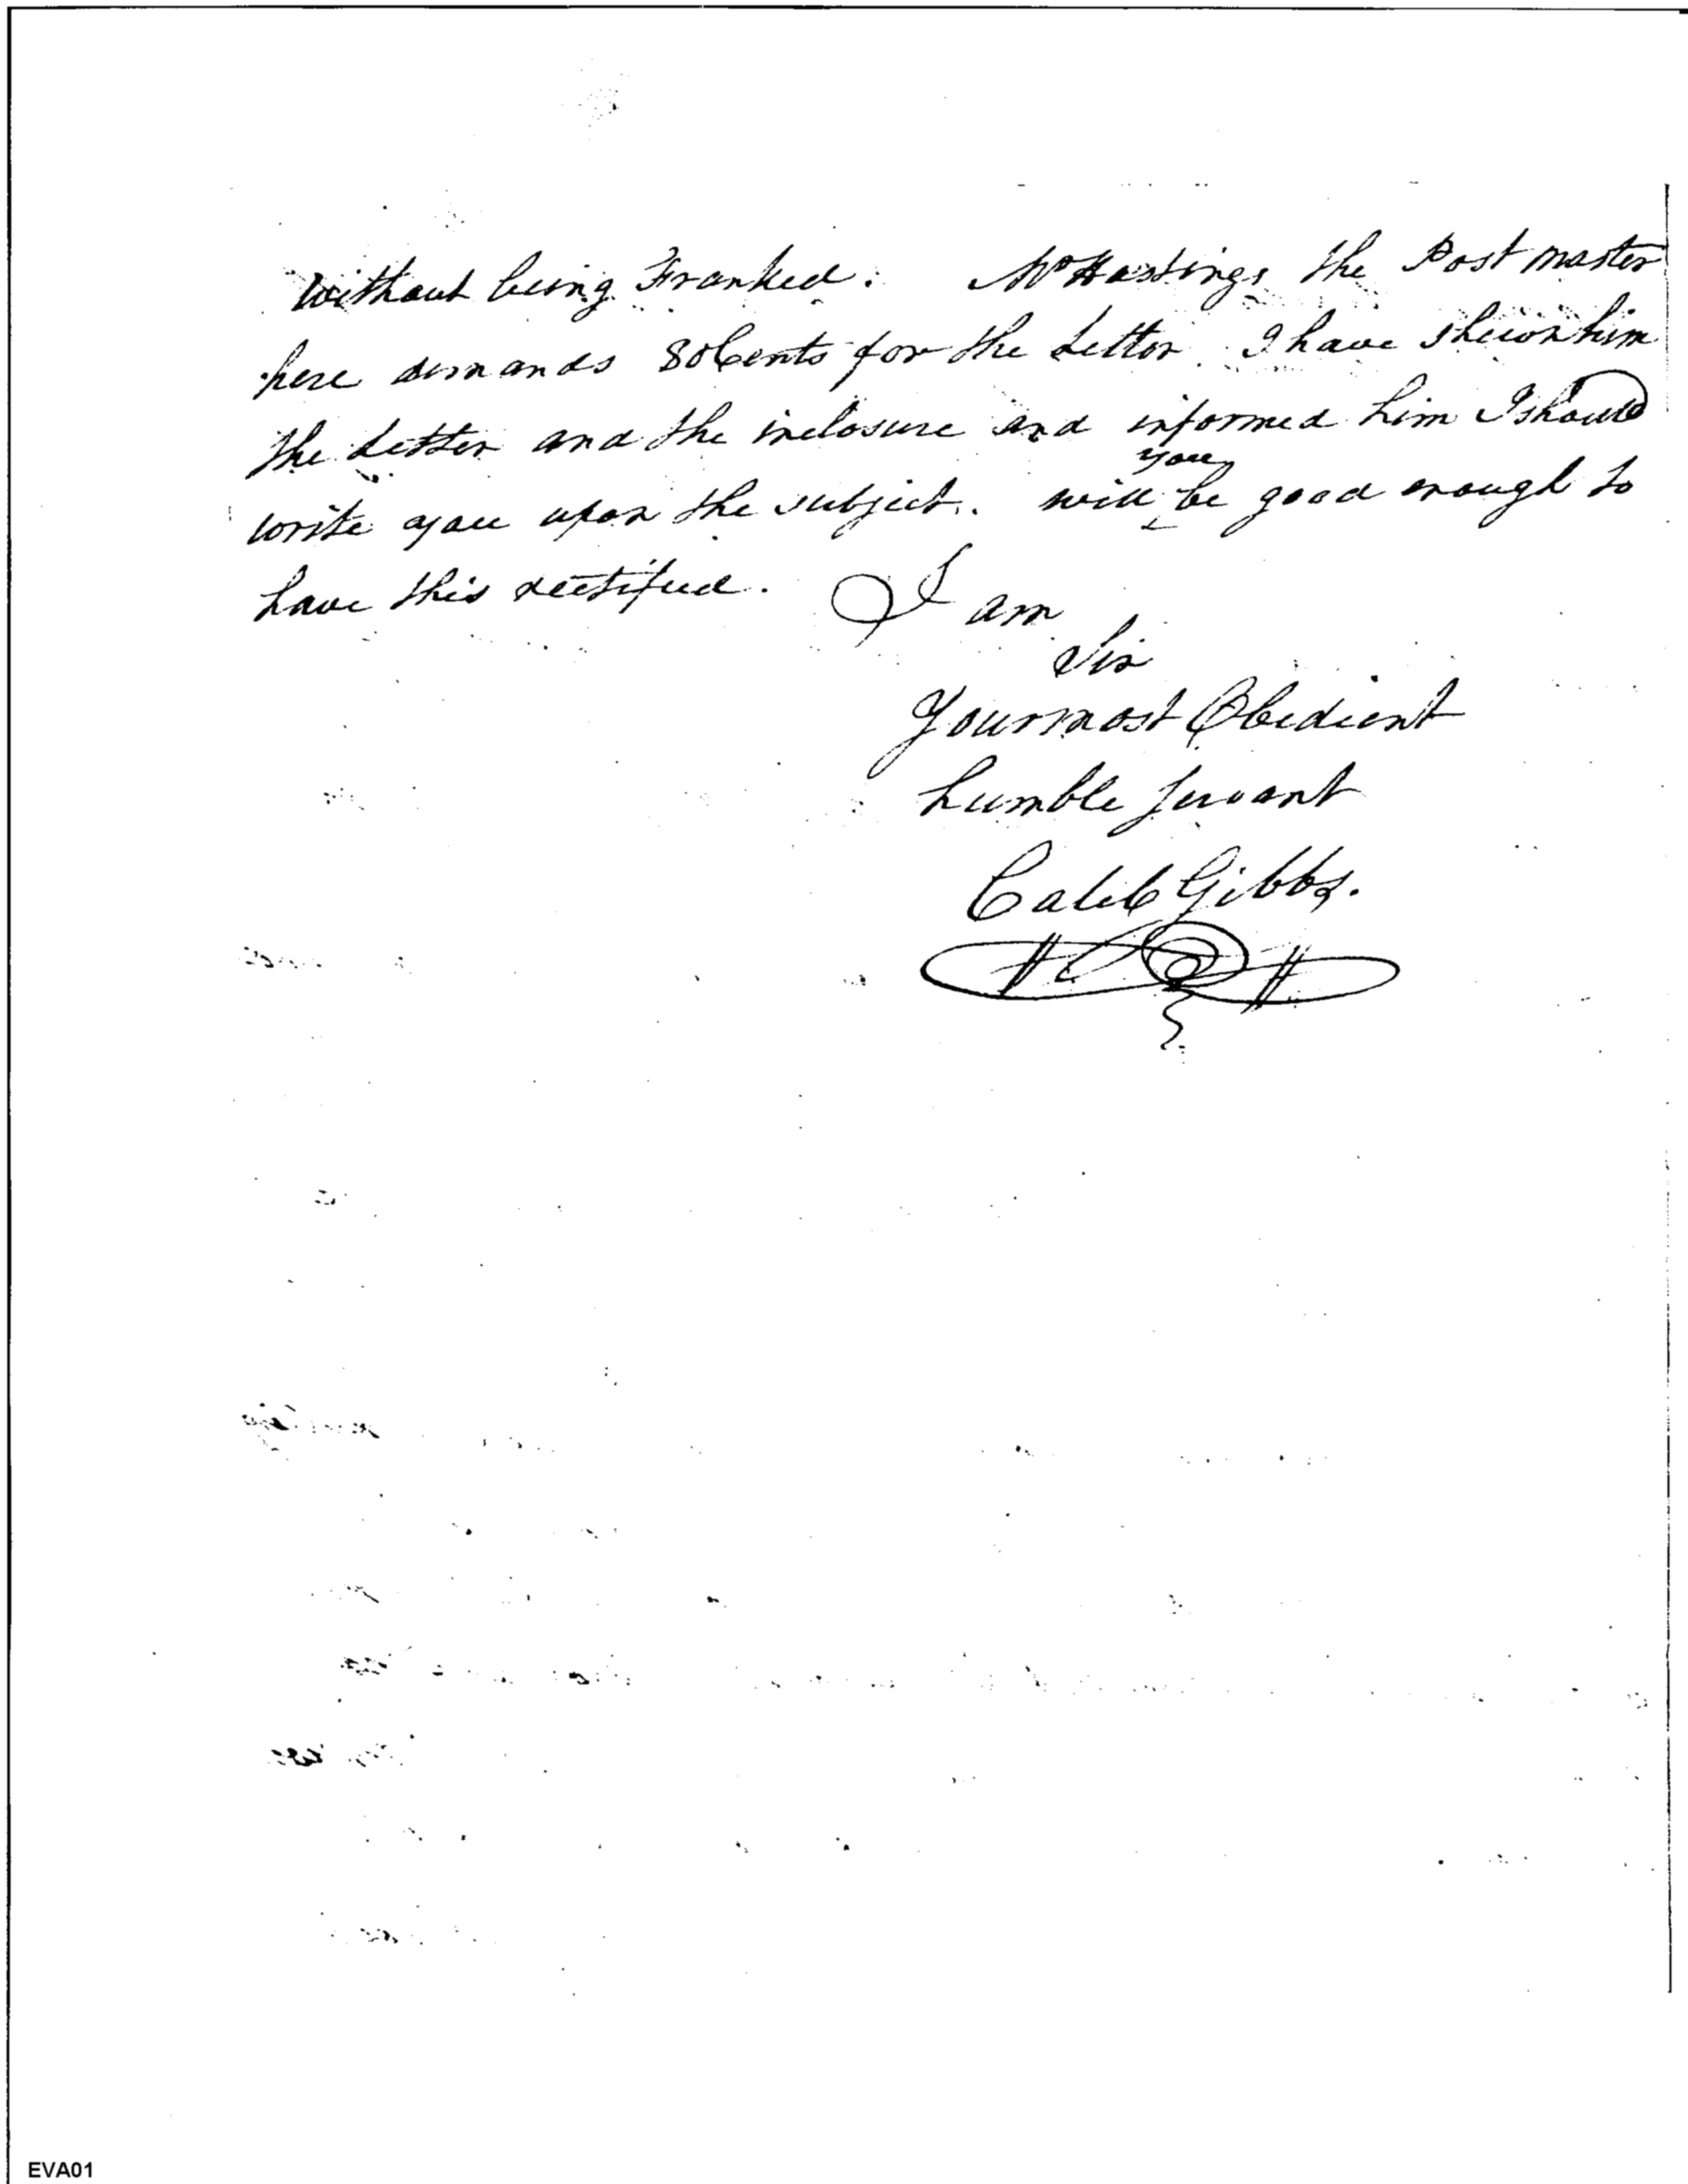 without being Franked. Mr Hastings the Postmaster
here demands 80 Cents for the Letter. I have shewn him
the Letter and the inclosure and informed him I should
write you upon the subject. will you be good enough to
have this rectified. I am
Sir
Your most Obedient
humble Servant
Caleb Gibbs.
EVA01